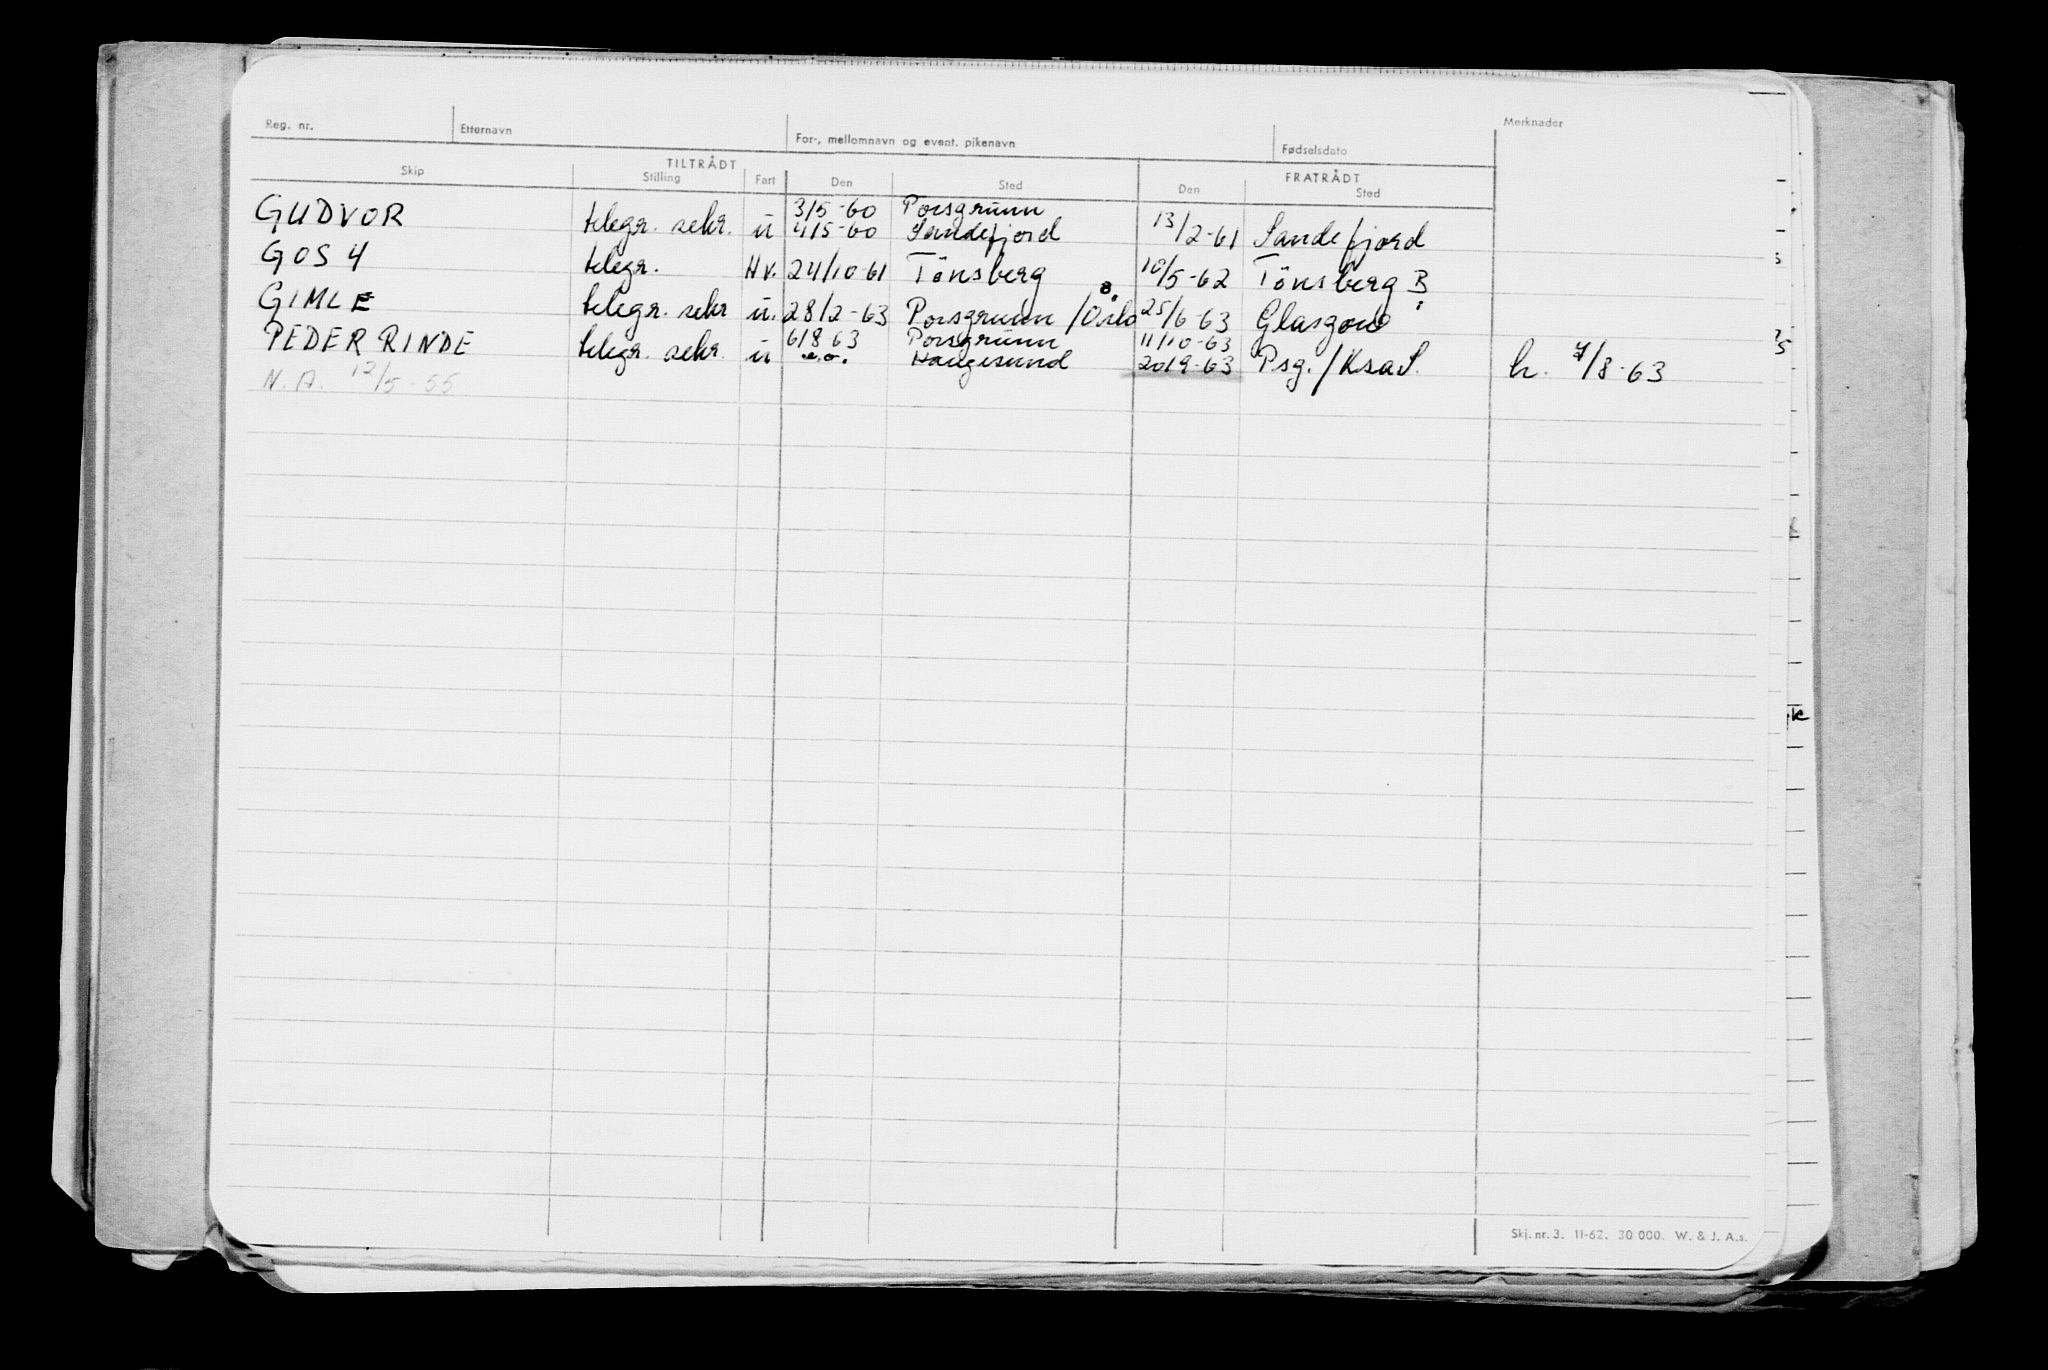 Reg. nr. Etternavn For-, mellomnavn og event. pikenavn Fødselsdato Merknader
TILTRÅDT FRATRÅDT
Skip Stilling Fart Den Sted Den Sted
3/5-60 Porsgrunn
GUDVOR telegr. sekr. u 4/5-60 Sandefjord 13/2-61 Sandefjord
GOS 4 telegr. Hv. 24/10-61 Tönsberg 10/5-62 Tönsberg B
GIMLE telegr. sekr u. 28/2-63 Porsgrunn /Oslo 25/6-63 Glasgow
6/8 63 Porsgrunn 11/10-63
PEDER RINDE telegr. sekr. u Haugesund 20/9-63 Psg./KsaS. h. 7/8-63
N.A. 12/5-55
Skj. nr. 3. 11-62. 30 000. W. & J. A.s.